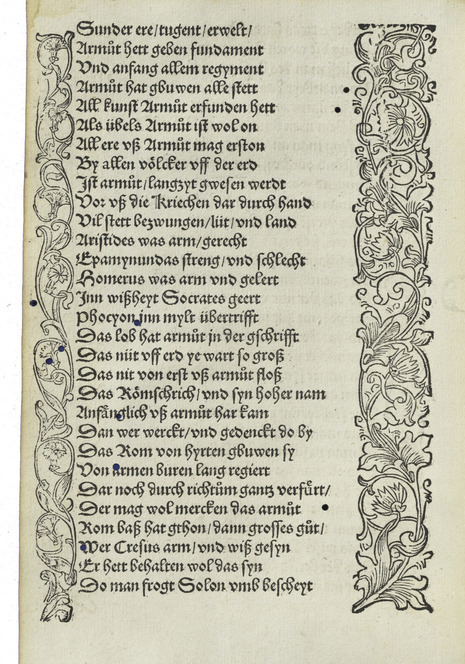 Sunder ere/tugent/erwelt/
Armůt hett geben fundament
Vnd anfang allem regyment
Armůt hat gbuwen alle stett
All kunst Armůt erfunden hett
Als übels Armůt ist wol on
All ere vß Armůt mag erston
By allen völcker vff der erd
Jst armůt/langzyt gwesen werdt
Vor vß die Kriechen dar durch hand
Vil stett bezwungen/lüt/vnd land
Aristides was arm/gerecht
Epamynundas streng/vnd schlecht
Homerus was arm vnd gelert
Jnn wißheyt Socrates geert
Phocyon jnn mylt übertrifft
Das lob hat armůt jn der gschrifft
Das nüt vff erd ye wart so groß
Das nit von erst vß armůt floß
Das Römschrich/vnd syn hoher nam
Anfänglich vß armůt har kam
Dan wer merckt/vnd gedenckt do by
Das Rom von hyrten gbuwen sy
Von armen buren lang regiert
Dar noch durch richtům gantz verfürt/
Der mag wol mercken das armůt
Rom baß hat gthon/dann grosses gůt/
Wer Cresus arm/vnd wiß gesyn
Er hett behalten wol das syn
Do man frogt Solon vmb bescheyt